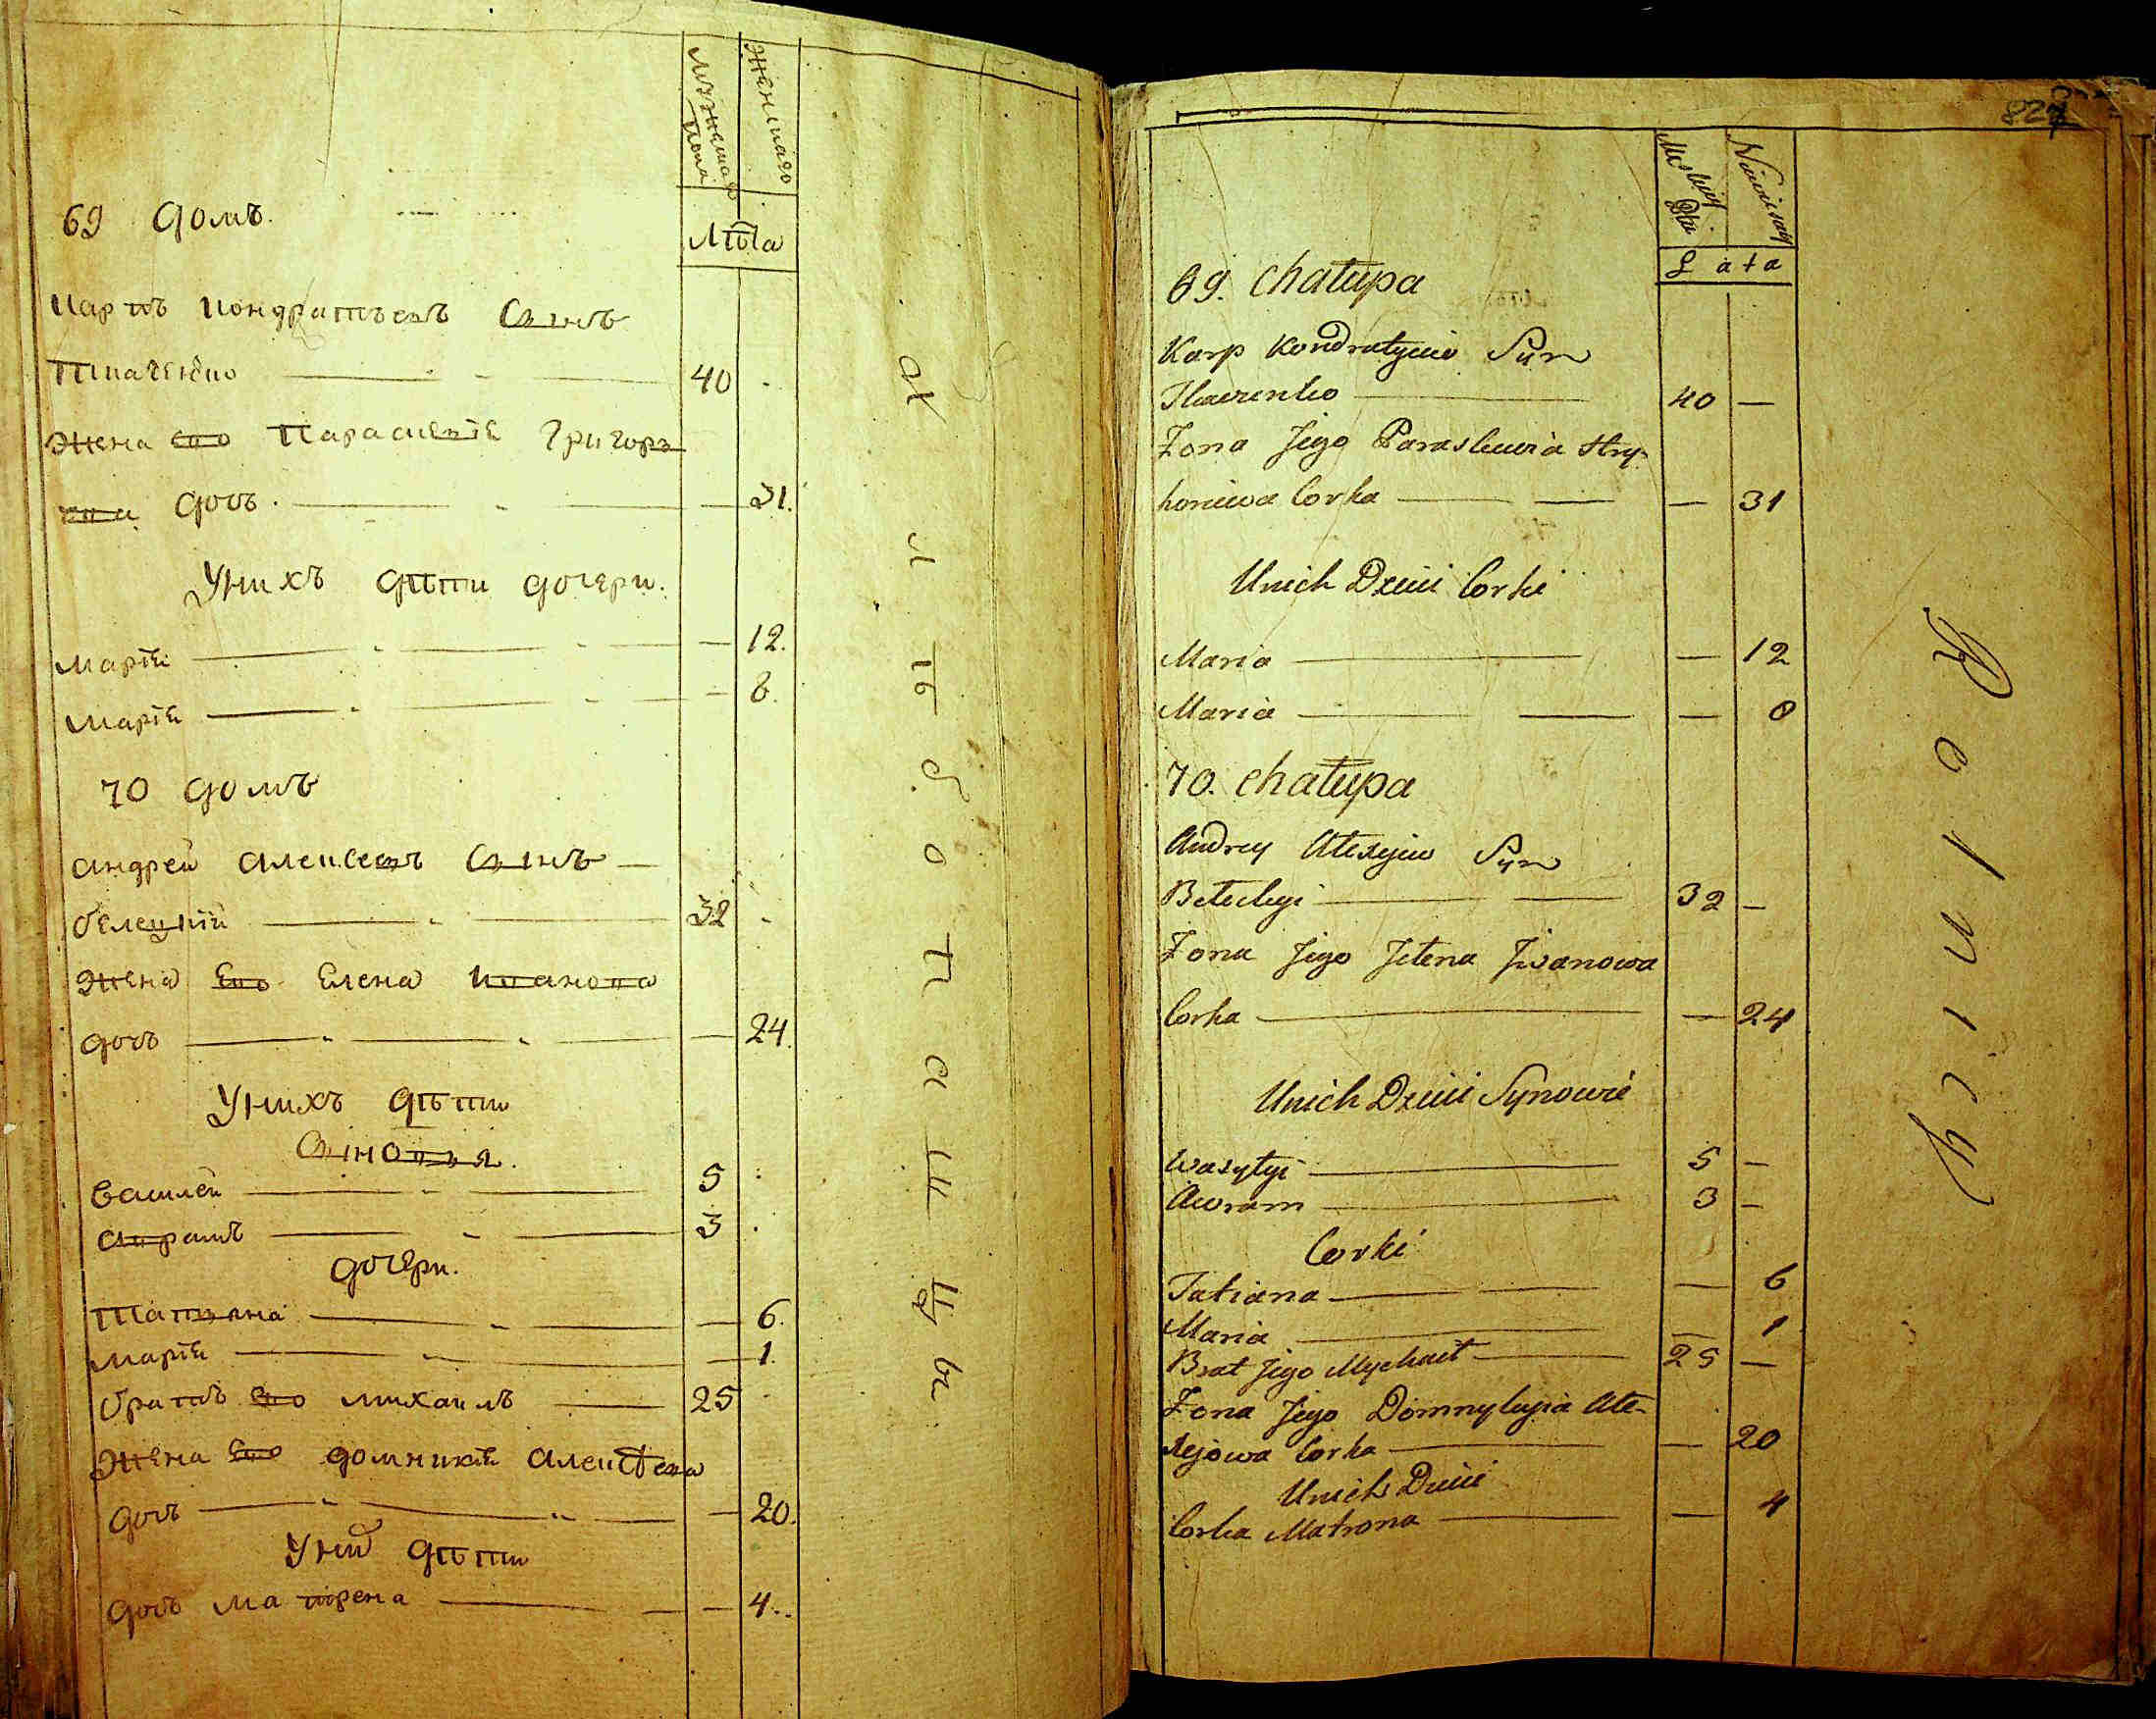 Мужеска Пола
Женскаго
Лѣта
69 домъ.
Карпъ Кондратьевъ Сынъ
Ткаченко 40
Жена его Параскевіе Григорь
ева дочь. 31.
У нихъ дѣти дочери.
Маріе 12.
Маріе 8.
70 домъ
Андрей Алексеевъ Сынъ
белецкій 32
Жена Его Елена Иванова
дочь 24.
У нихъ дѣти
Сыновья.
Василей 5
Аврамъ 3
дочери.
Татьяна 6.
Маріе 1.
братъ Его Михаилъ 25
Жена Его домникіе Алексѣева
дочь 20.
У них дѣти
дочь Матрена 4.
Х л ѣ б о п а ш ц ы
Męskiej Płci
Niewieściej
Lata
69. Chałupa
Karp Kondratyiew Syn
Tkaczenko 40
Żona Jego Paraskewia Hry-
horiewa Corka 31
Unich Dzieci Corki
Maria 12
Maria 8
70. Chałupa
Andrey Alexyiew Syn
Beleckyi 32
Żona Jego Jelena Jwanowa
Corka 24
Unich Dzieci Synowie
Wasylyi 5
Awram 3
Corki
Tatiana 6
Maria 1
Brat Jego Mychaił 25
Żona Jego Domnykyia Ale-
xejowa Corka 20
Unich Dzieci
Corka Matrona 4
R o l n i c y